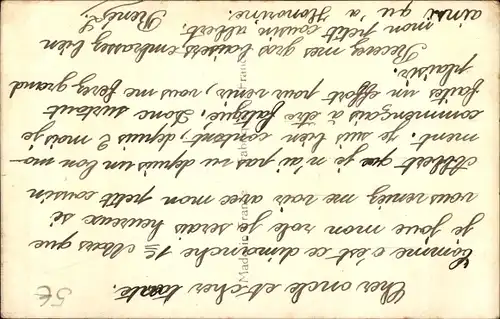 Cher oncle et cher tante.
Comme c'est ce dimanche 1er Mars que
je joue mon role je serais heureux si
vous veniez me voir avec mon petit cousin
Albert que je n'ai pas vu depuis un bon mo-
ment. je suis bien content, depuis 2 mois je
commençais à être fatiguée. Donc surtout
faites un effort pour venir, vous me ferez grand
plaisir.
Recevez mes gros baisers embrassez bien
mon petit cousin albert.
ainsi qu'à Honorine.
René
5€
Made in France